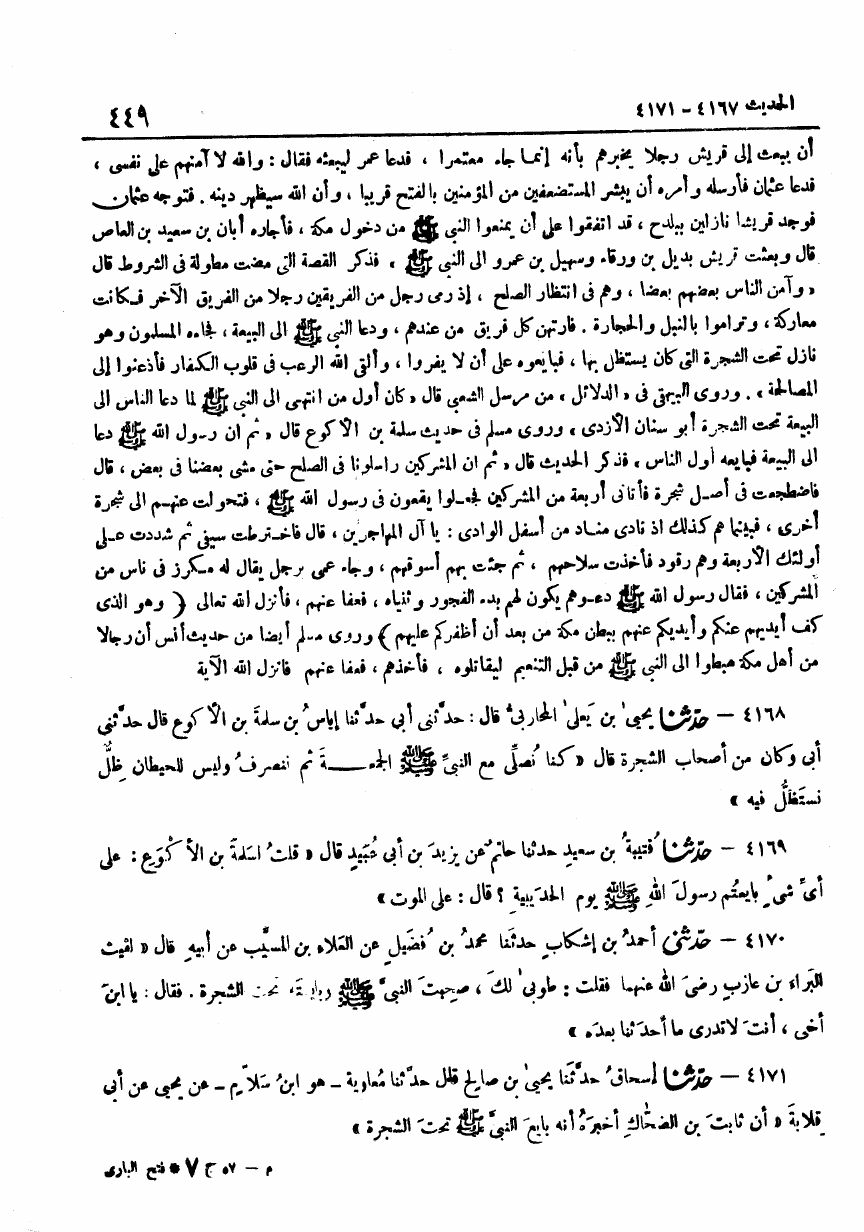 الحديث ٤١٦٧ – ٤١٧١
٤٤٩
أن يبعث إلى قريش رجلا يخبرهم بأنه إنما جاء معتمرا ، فدعا عمر ليبعثه فقال : والله لا آمنهم على نفسى ،
فدعا عثمان فأرسله وأمره أن يبشر المستضعفين من المؤمنين بالفتح قريبا ، وأن الله سيظهر دينه . فتوجه عثمان
فوجد قريشا نازلين ببلدح ، قد اتفقوا على أن يمنعوا النبى ﷺ من دخول مكة ، فأجاره أبان بن سعيد بن العاص
قال وبعثت قريش بديل بن ورقاء وسهيل بن عمرو الى النبى ﷺ » فذكر القصة التى مضت مطولة فى الشروط قال
« وآمن الناس بعضهم بعضا ، وهم فى انتظار الصلح ، إذ رمى رجل من الفريقين رجلا من الفريق الآخر فكانت
معاركة ، وتراموا بالنبل والحجارة . فارتهن كل فريق من عندهم ، ودعا النبى ﷺ الى البيعة ، فجاءه المسلمون وهو
نازل تحت الشجرة التى كان يستظل بها ، فبايعوه على أن لا يفروا ، وألقى الله الرعب فى قلوب الكفار فأذعنوا إلى
المصالحة » . وروى البيهقى فى « الدلائل » من مرسل الشعبى قال « كان أول من انتهى الى النبى ﷺ لما دعا الناس الى
البيعة تحت الشجرة أبو سنان الأزدى » وروى مسلم فى حديث سلمة بن الاكوع قال « ثم ان رسول الله ﷺ دعا
الى البيعة فبايعه أول الناس » فذكر الحديث قال « ثم ان المشركين راسلونا فى الصلح حتى مشى بعضنا فى بعض ، قال
فاضطجعت فى أصل شجرة فأتانى أربعة من المشركين فجعلوا يقعون فى رسول الله ﷺ ، فتحولت عنهم الى شجرة
أخرى ، فبينما هم كذلك اذ نادى مناد من أسفل الوادى : يا آل المهاجرين ، قال فاخترطت سيفى ثم شددت على
أولئك الأربعة وهم رقود فأخذت سلاحهم ، ثم جئت بهم أسوقهم ، وجاء عمى برجل يقال له مكرز فى ناس من
المشركين ، فقال رسول الله ﷺ دعوهم يكون لهم بدء الفجور وثنياه ، فعفا عنهم ، فأنزل الله تعالى ( وهو الذى
كف أيديهم عنكم وأيديكم عنهم ببطن مكة من بعد أن أظفركم عليهم ) وروى مسلم أيضا من حديث أنس أن رجالا
من أهل مكة هبطوا الى النبى ﷺ من قبل التنعيم ليقاتلوه ، فأخذهم ، فعفا عنهم فانزل الله الآية
٤١٦٨ – حدّثنا يحيىٰ بن يَعلىٰ المحاربىُّ قال : حدَّثنى أبى حدَّثنا إياسُ بن سلمةَ بن الأكوع قال حدَّثنى
أبى وكان من أصحاب الشجرة قال « كنا نُصلِّى مع النبىِّ ﷺ الجمعـــةَ ثم ننصرفُ وليس للحيطان ظِلٌّ
نستَظلُّ فيه »
٤١٦٩ – حدّثنا قُتيبةُ بن سعيدٍ حدثنا حاتمٌ عن يزيدَ بن أبى عُبيدٍ قال « قلتُ لسَلمةَ بن الأكْوَعِ : على
أىِّ شىءٍ بايعتُم رسولَ اللهِ ﷺ يوم الحدَيبيةِ ؟ قال : على الموت »
٤١٧٠ – حدّثنى أحمدُ بن إشكابٍ حدثَنا محمدُ بن فُضَيلٍ عن العَلاءِ بن المسيَّب عن أبيهِ قال « لقيتُ
البَراء بن عازبٍ رضىَ الله عنهما فقلت : طوبىٰ لكَ ، صحِبتَ النبىَّ ﷺ وبايعتَه تحتَ الشجرة . فقال : يا ابنَ
أخى ، أنتَ لا تدرى ما أحدَثنا بعدَه »
٤١٧١ – حدّثنا إسحاقُ حدَّثنَا يحيىٰ بن صالحٍ قال حدَّثنا مُعاوية – هو ابنُ سَلاّمٍ – عن يحيى عن أبى
قِلابةَ « أن ثابتَ بن الضحّاكِ أخبرَهُ أنه بايعَ النبىَّ ﷺ تحتَ الشجرة »
م – ٥٧ ج ٧ * فتح البارى